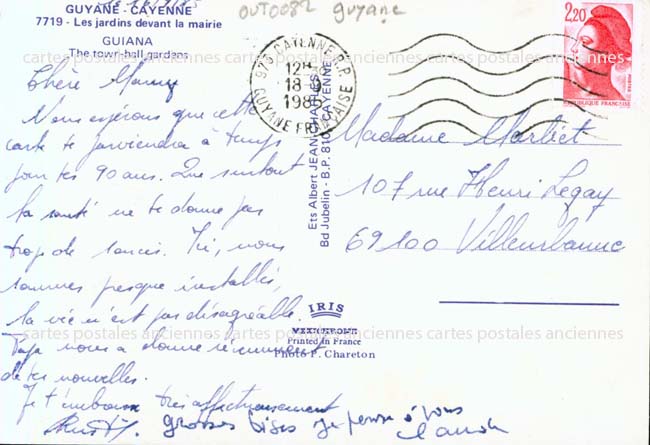 GUYANE - CAYENNE
7719 - Les jardins devant la mairie
GUIANA
The town-hall gardens
OUT0082 guyane
973 CAYENNE R.P.
12H
18-
1985
GUYANE FRANÇAISE
2,20
REPUBLIQUE FRANÇAISE
Chère Mamy
Nous espérons que cette
carte te parviendra à temps
pour tes 90 ans. Que surtout
la santé ne te donne pas
trop de soucis. Ici, nous
sommes presque installés,
la vie n'est pas désagréable.
Papa nous a donné récemment
de tes nouvelles.
Je t'embrasse très affectueusement
grosses bises je pense à vous
Ets Albert JEAN-CHARLES
Bd Jubelin - B.P. 810 CAYENNE
Madame Marliet
107 rue Henri Legay
69100 Villeurbanne
IRIS
MEXICHROME
Printed in France
Photo P. Chareton
cartes postales anciennes cartes postales anciennes cartes postales anciennes